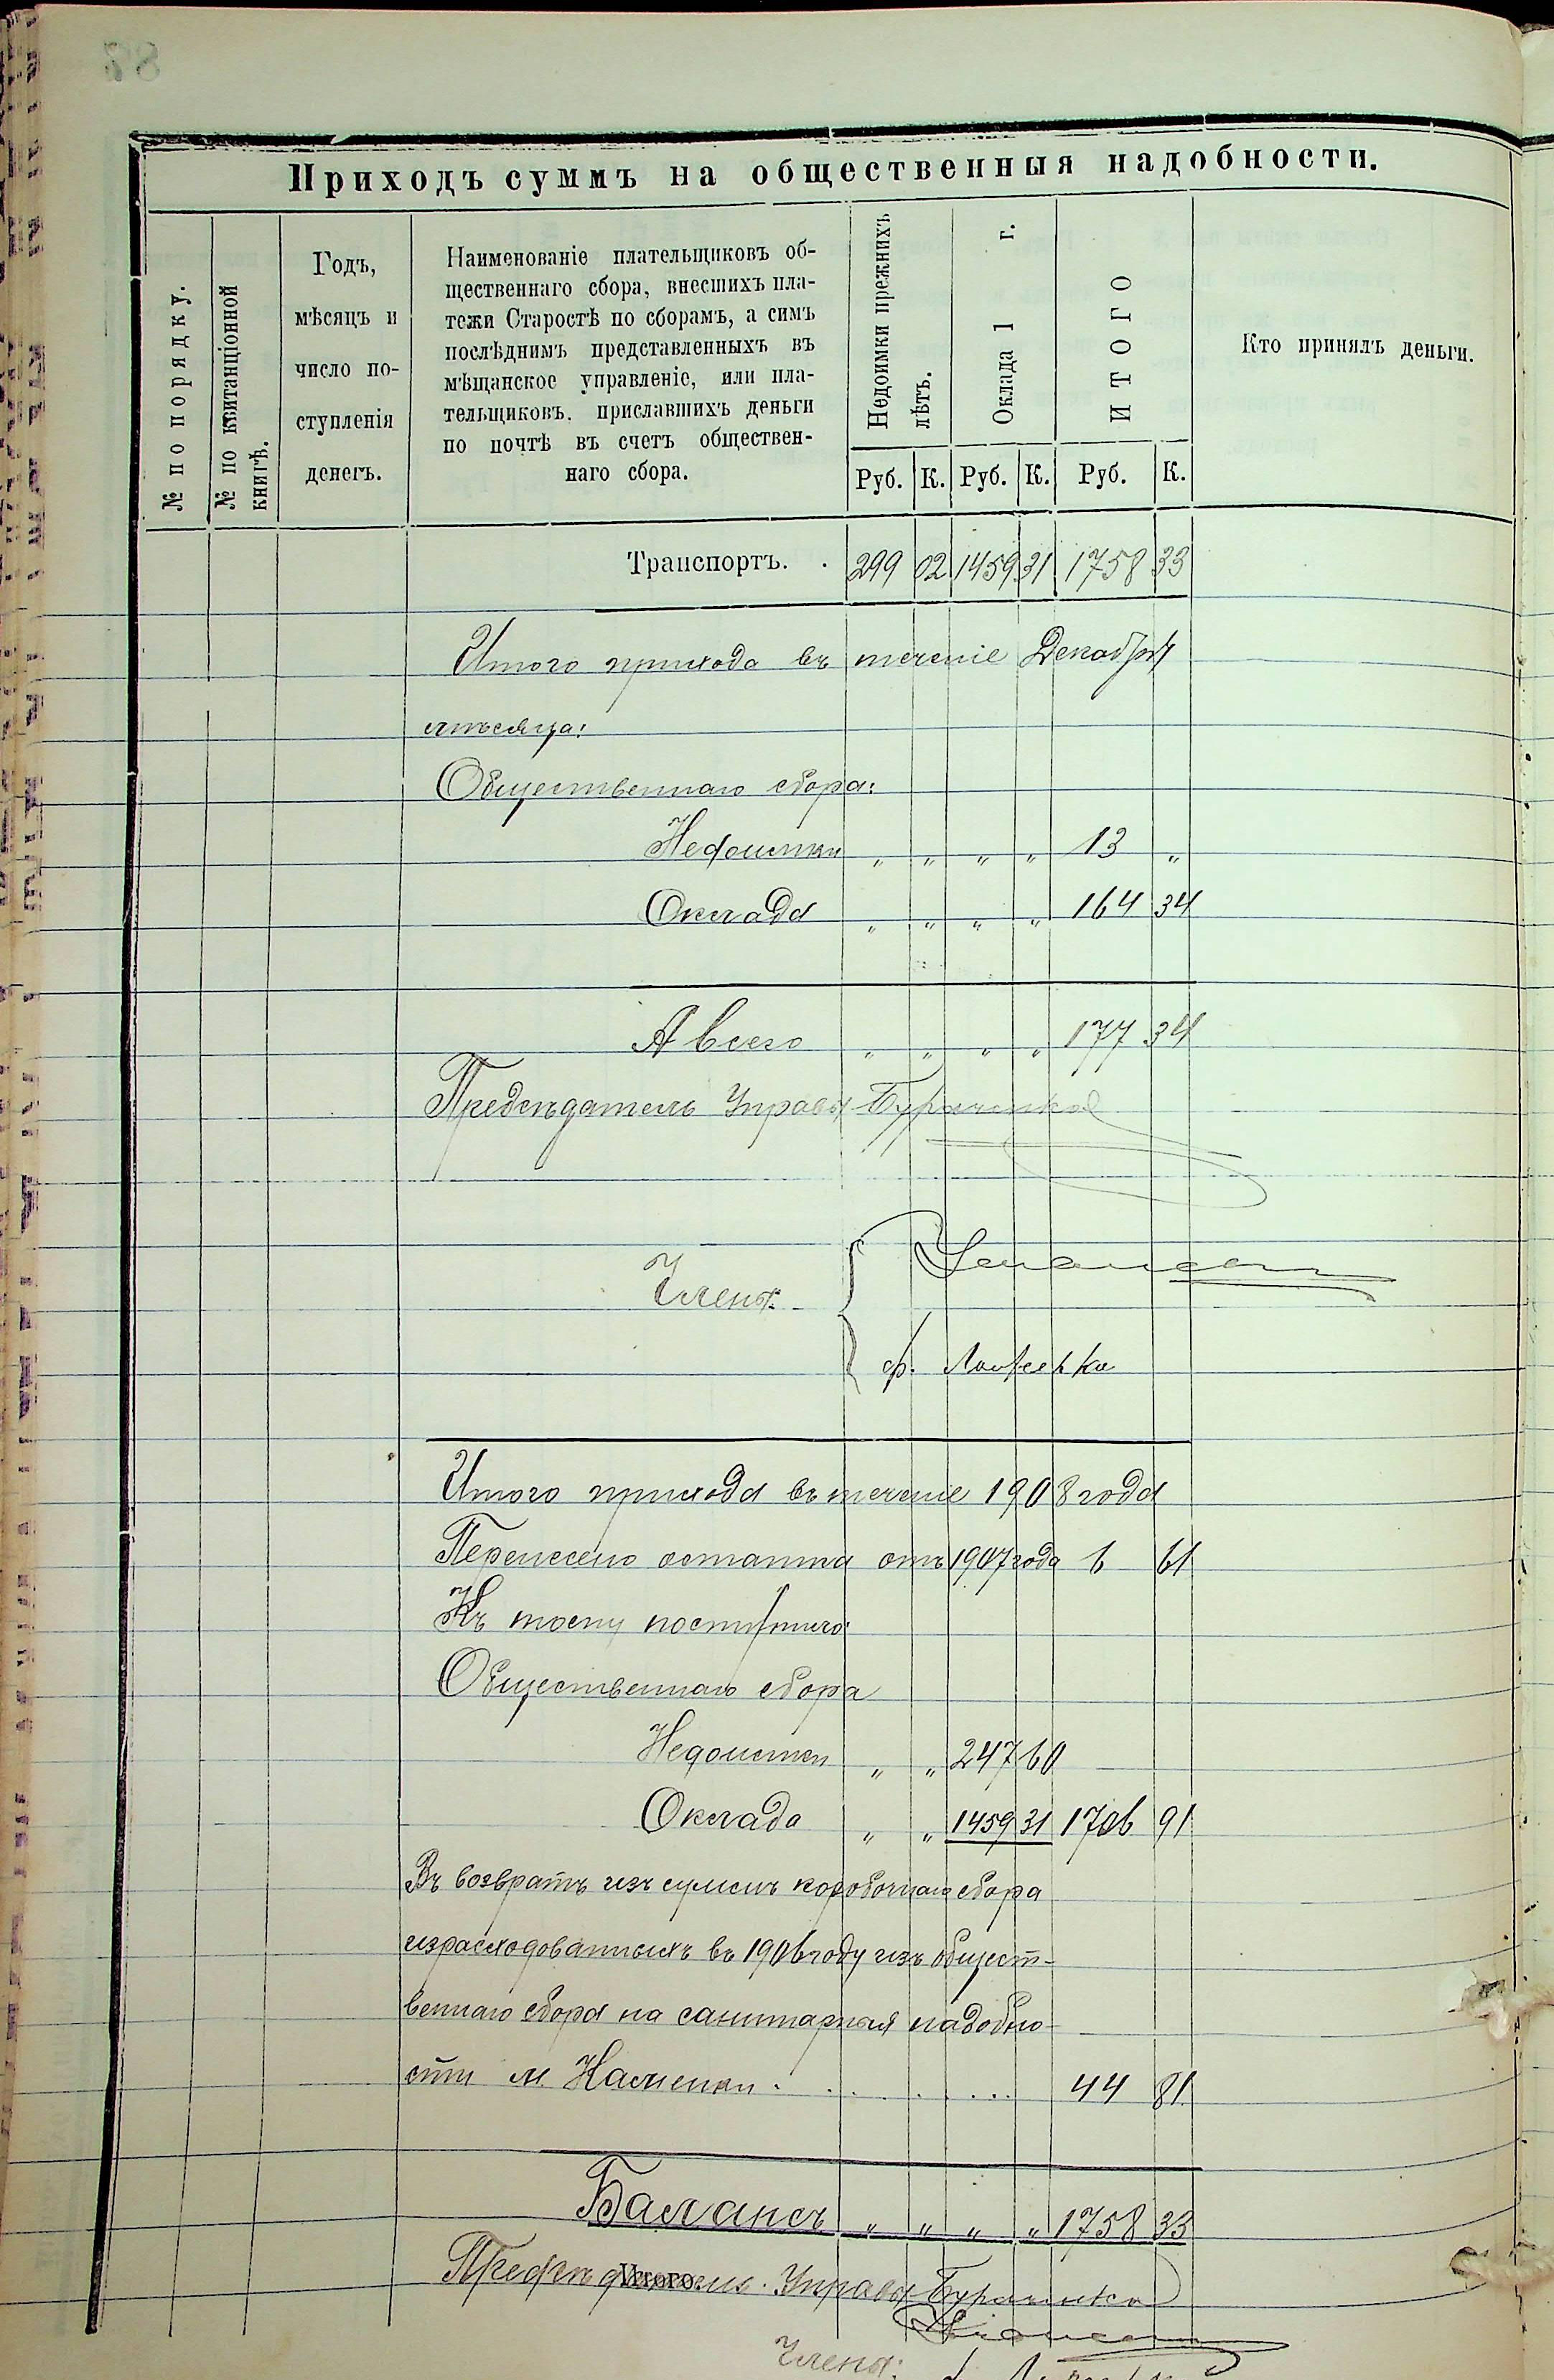 87
Приходъ суммъ на общественныя надобности.
№ по порядку.
№ по квитанціонной
книгѣ.
Годъ,
мѣсяцъ и
число по-
ступленія
денегъ.
Наименованіе плательщиковъ об-
щественнаго сбора, внесшихъ пла-
тежи Старостѣ по сборамъ, а симъ
послѣднимъ представленныхъ въ
мѣщанское управленіе, или пла-
тельщиковъ. приславшихъ деньги
по почтѣ въ счетъ обществен-
наго сбора.
Недоимки прежнихъ
лѣтъ.
Оклада 1 г.
ИТОГО
Руб. К. Руб. К. Руб. К.
Кто принялъ деньги.
Транспортъ. . 299 02 1459 31 1758 33
Итого прихода въ теченіе Декабря
мѣсяца:
Общественнаго сбора:
Недоимки " " " " 13 "
Оклада " " " " 164 34
А всего " " " " 177 34
Предсѣдатель Управы
Члены:
ф.
Итого прихода въ теченіе 1908 года
Перенесено остатка отъ 1907 года 6 61
Къ тому поступило:
Общественнаго сбора
Недоимки " " 247 60
Оклада " " 1459 31 1706 91
Въ возвратъ изъ суммъ коробочнаго сбора
израсходованныхъ въ 1906 году изъ общест-
веннаго сбора на санитарныя надобно-
сти м. Каменки . . . . . . . 44 81
Балансъ " " " " 1758 33
Итого.
Предсѣдатель Управы
Члены: